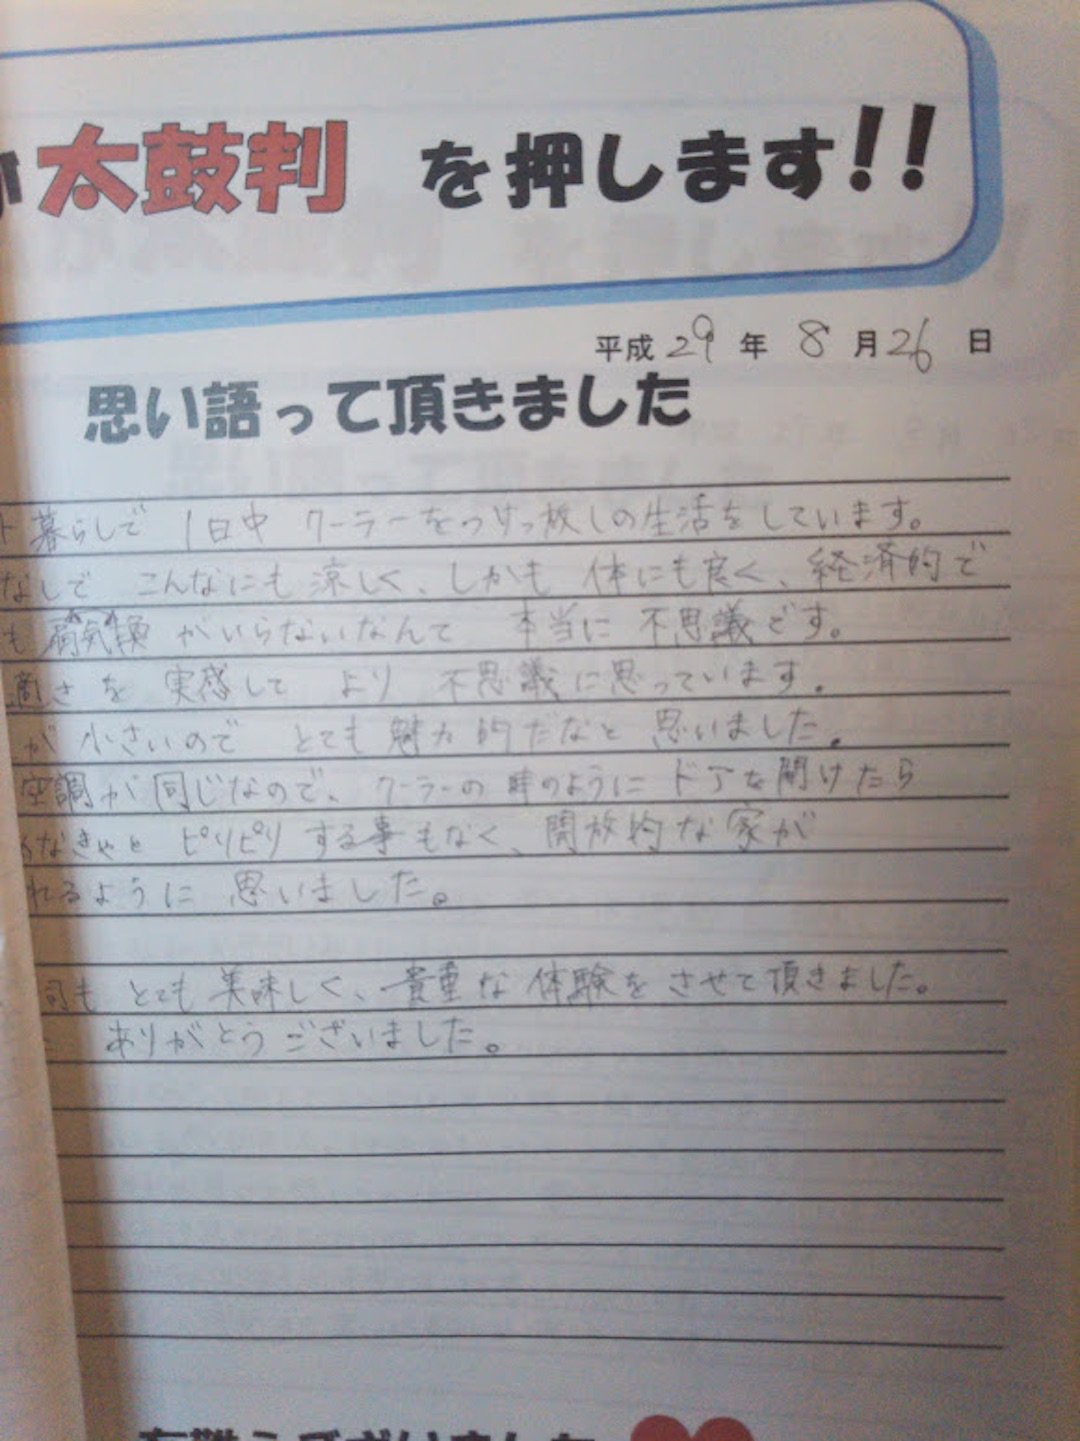 が太鼓判 を押します!!
平成 29 年 8 月 26 日
思い語って頂きました
ト暮らしで 1日中 クーラーをつけっ放しの生活をしています。
なしで こんなにも涼しく、しかも 体にも良く、経済的で
も 換気扇 がいらないなんて 本当に 不思議です。
適さを 実感して より 不思議に思っています。
が小さいので とても魅力的だなと 思いました。
空調が同じなので、クーラーの時のように ドアを開けたら
なきゃと ピリピリする事もなく、開放的な家が
れるように 思いました。
司も とても美味しく、貴重な体験をさせて頂きました。
ありがとうございました。